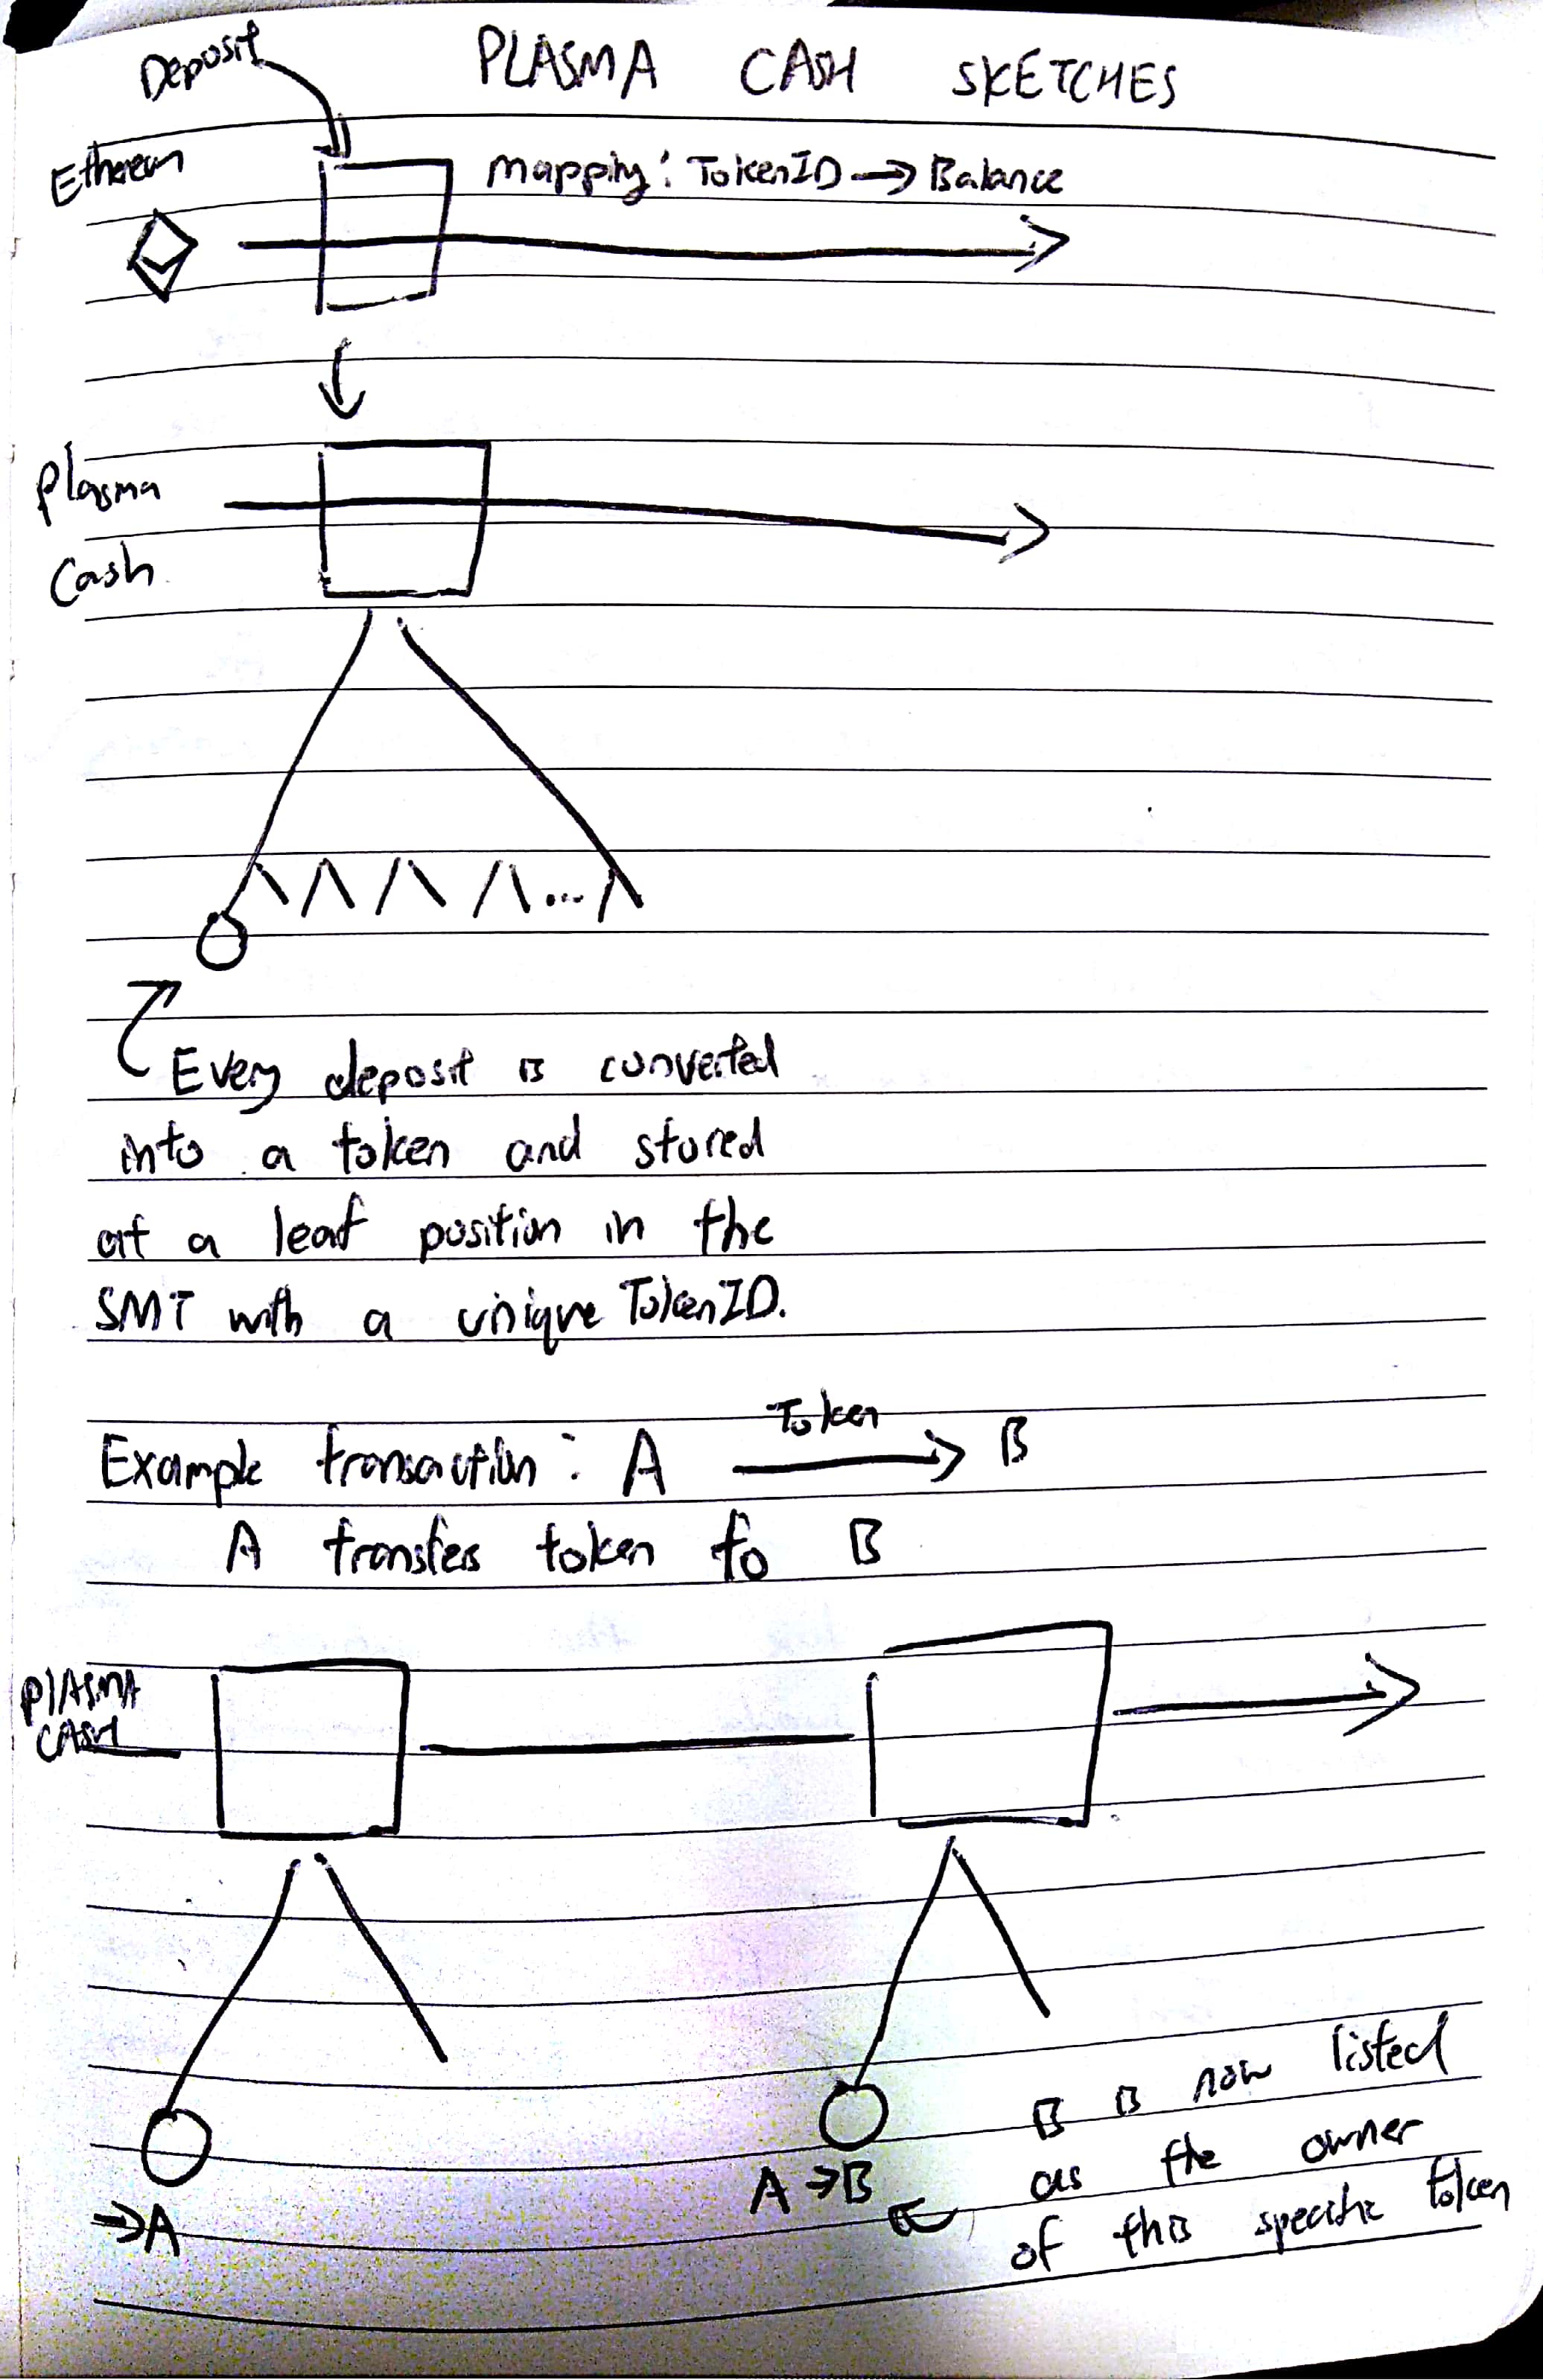 PLASMA CASH SKETCHES
Deposit
Ethereum
Mapping: TokenID → Balance
Plasma
Cash
Every deposit is converted
into a token and stored
at a leaf position in the
SMT with a unique TokenID.
Example transaction: A Token → B
A transfers token to B
PLASMA
CASH
→A
A→B
B is now listed
as the owner
of this specific token